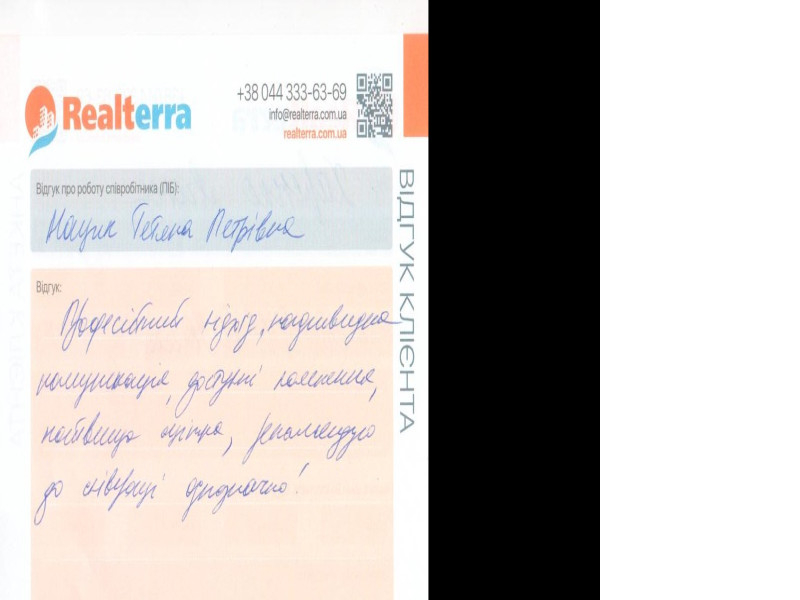 Realterra
+38 044 333-63-69
info@realterra.com.ua
realterra.com.ua
ВІДГУК КЛІЄНТА
Відгук про роботу співробітника (ПІБ):
Нащик Тетяна Петрівна
Відгук:
Професійний підхід, надшвидка
комунікація, доступні пояснення,
найвища оцінка, рекомендую
до співпраці однозначно!